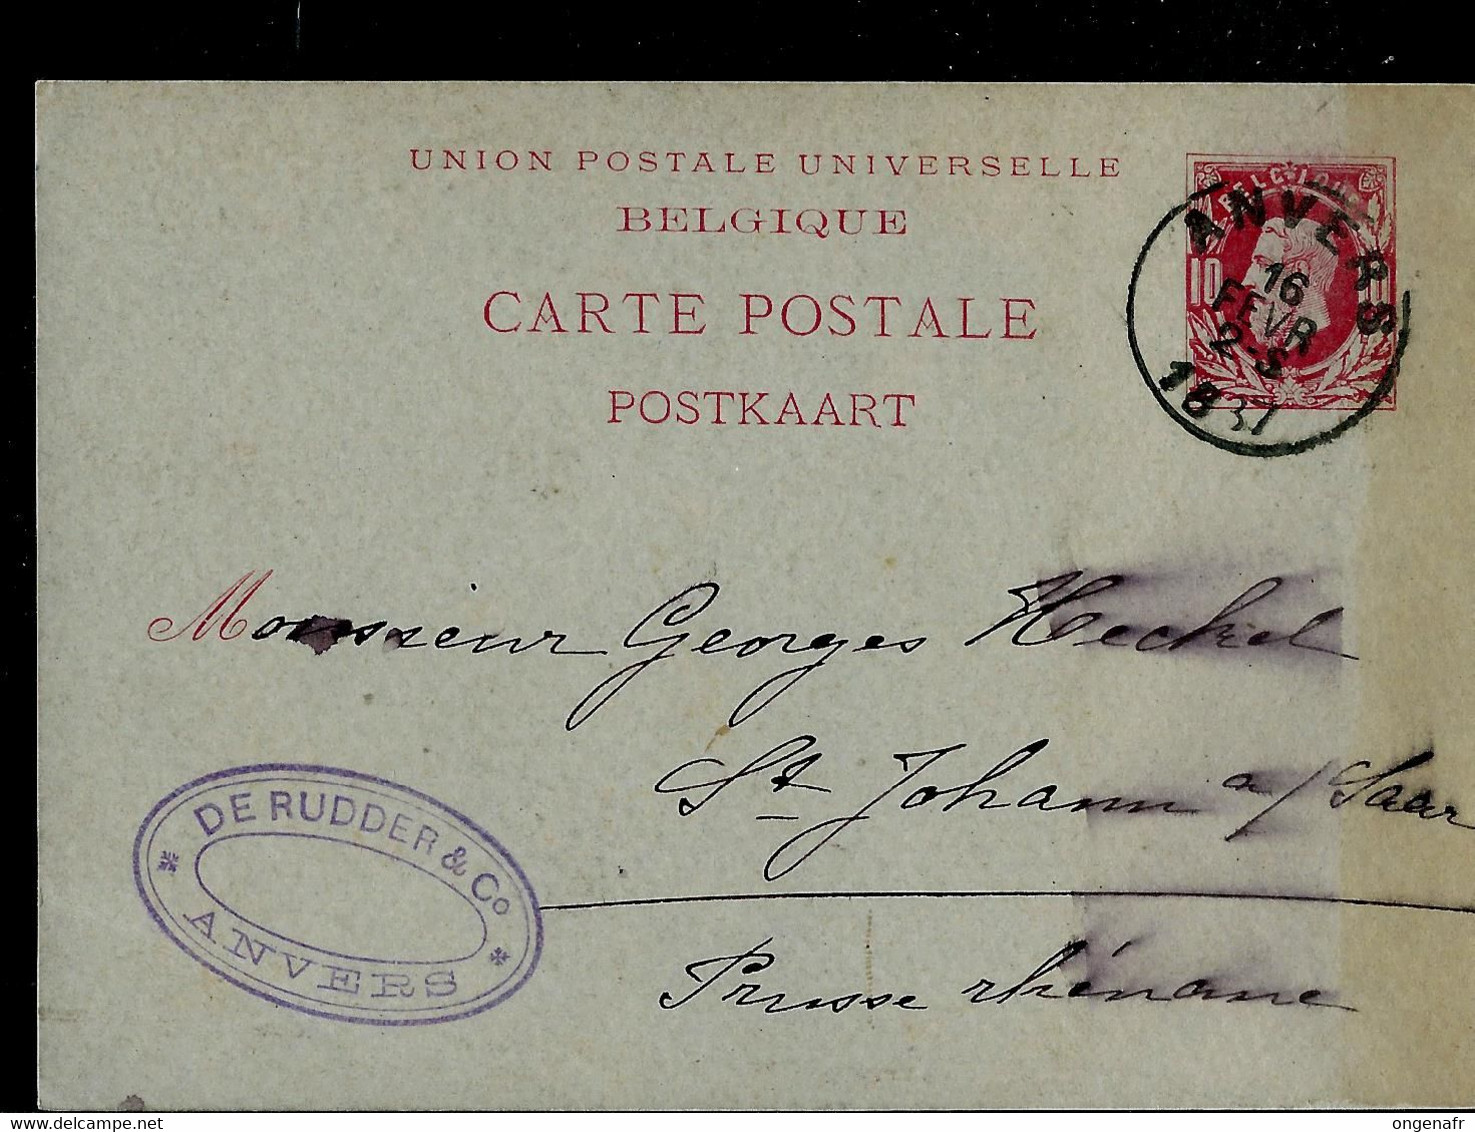 UNION POSTALE UNIVERSELLE
BELGIQUE
CARTE POSTALE
POSTKAART
BELGIQUE
10
ANVERS
16
FEVR
2-S
1887
Monsieur Georges Heckel
St Johann a/Saar
Prusse rhénane
DE RUDDER & Co
ANVERS
delcampe.net
ongenafr